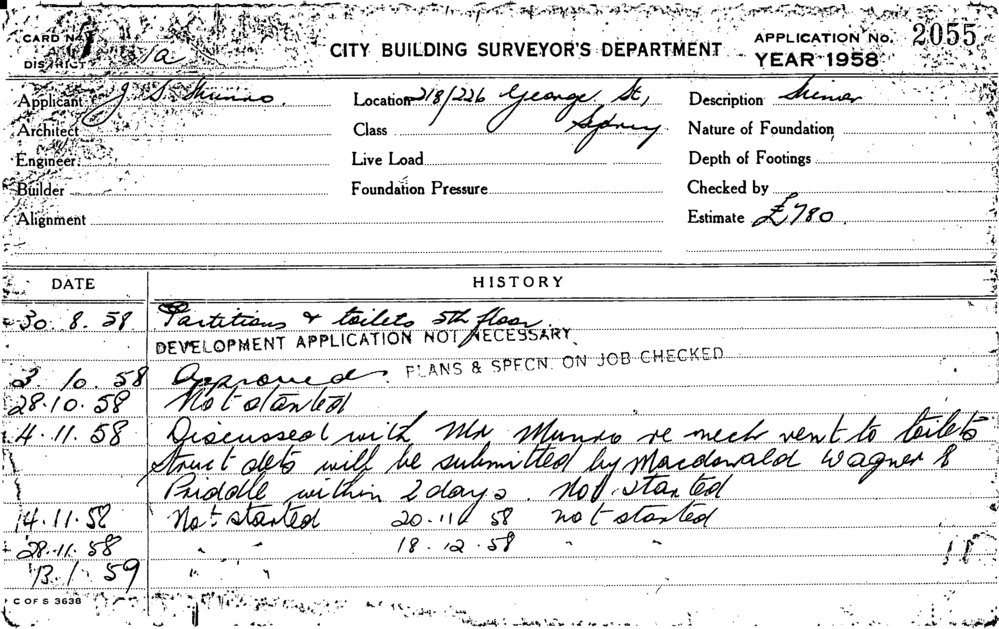 CARD No.
DISTRICT 1a
CITY BUILDING SURVEYOR'S DEPARTMENT
APPLICATION No. 2055
YEAR 1958
Applicant J. S. Munro.
Location 218/226 George St,
Sydney
Description Minor
Architect
Class
Nature of Foundation
Engineer
Live Load
Depth of Footings
Builder
Foundation Pressure
Checked by
Alignment
Estimate £780.
DATE HISTORY
30. 8. 58 Partitions & toilets 5th floor,
DEVELOPMENT APPLICATION NOT NECESSARY.
3 10. 58 Approved. PLANS & SPECN. ON JOB CHECKED
28.10.58 Not started
4.11.58 Discussed with Mr Munro re mech vent to toilets
Struct dets will be submitted by Macdonald Wagner &
Priddle within 2 days. Not started
14.11.58 Not started 20.11.58 not started
28.11.58 " " 18.12.58 " "
13.1.59 " "
C OF S 3636